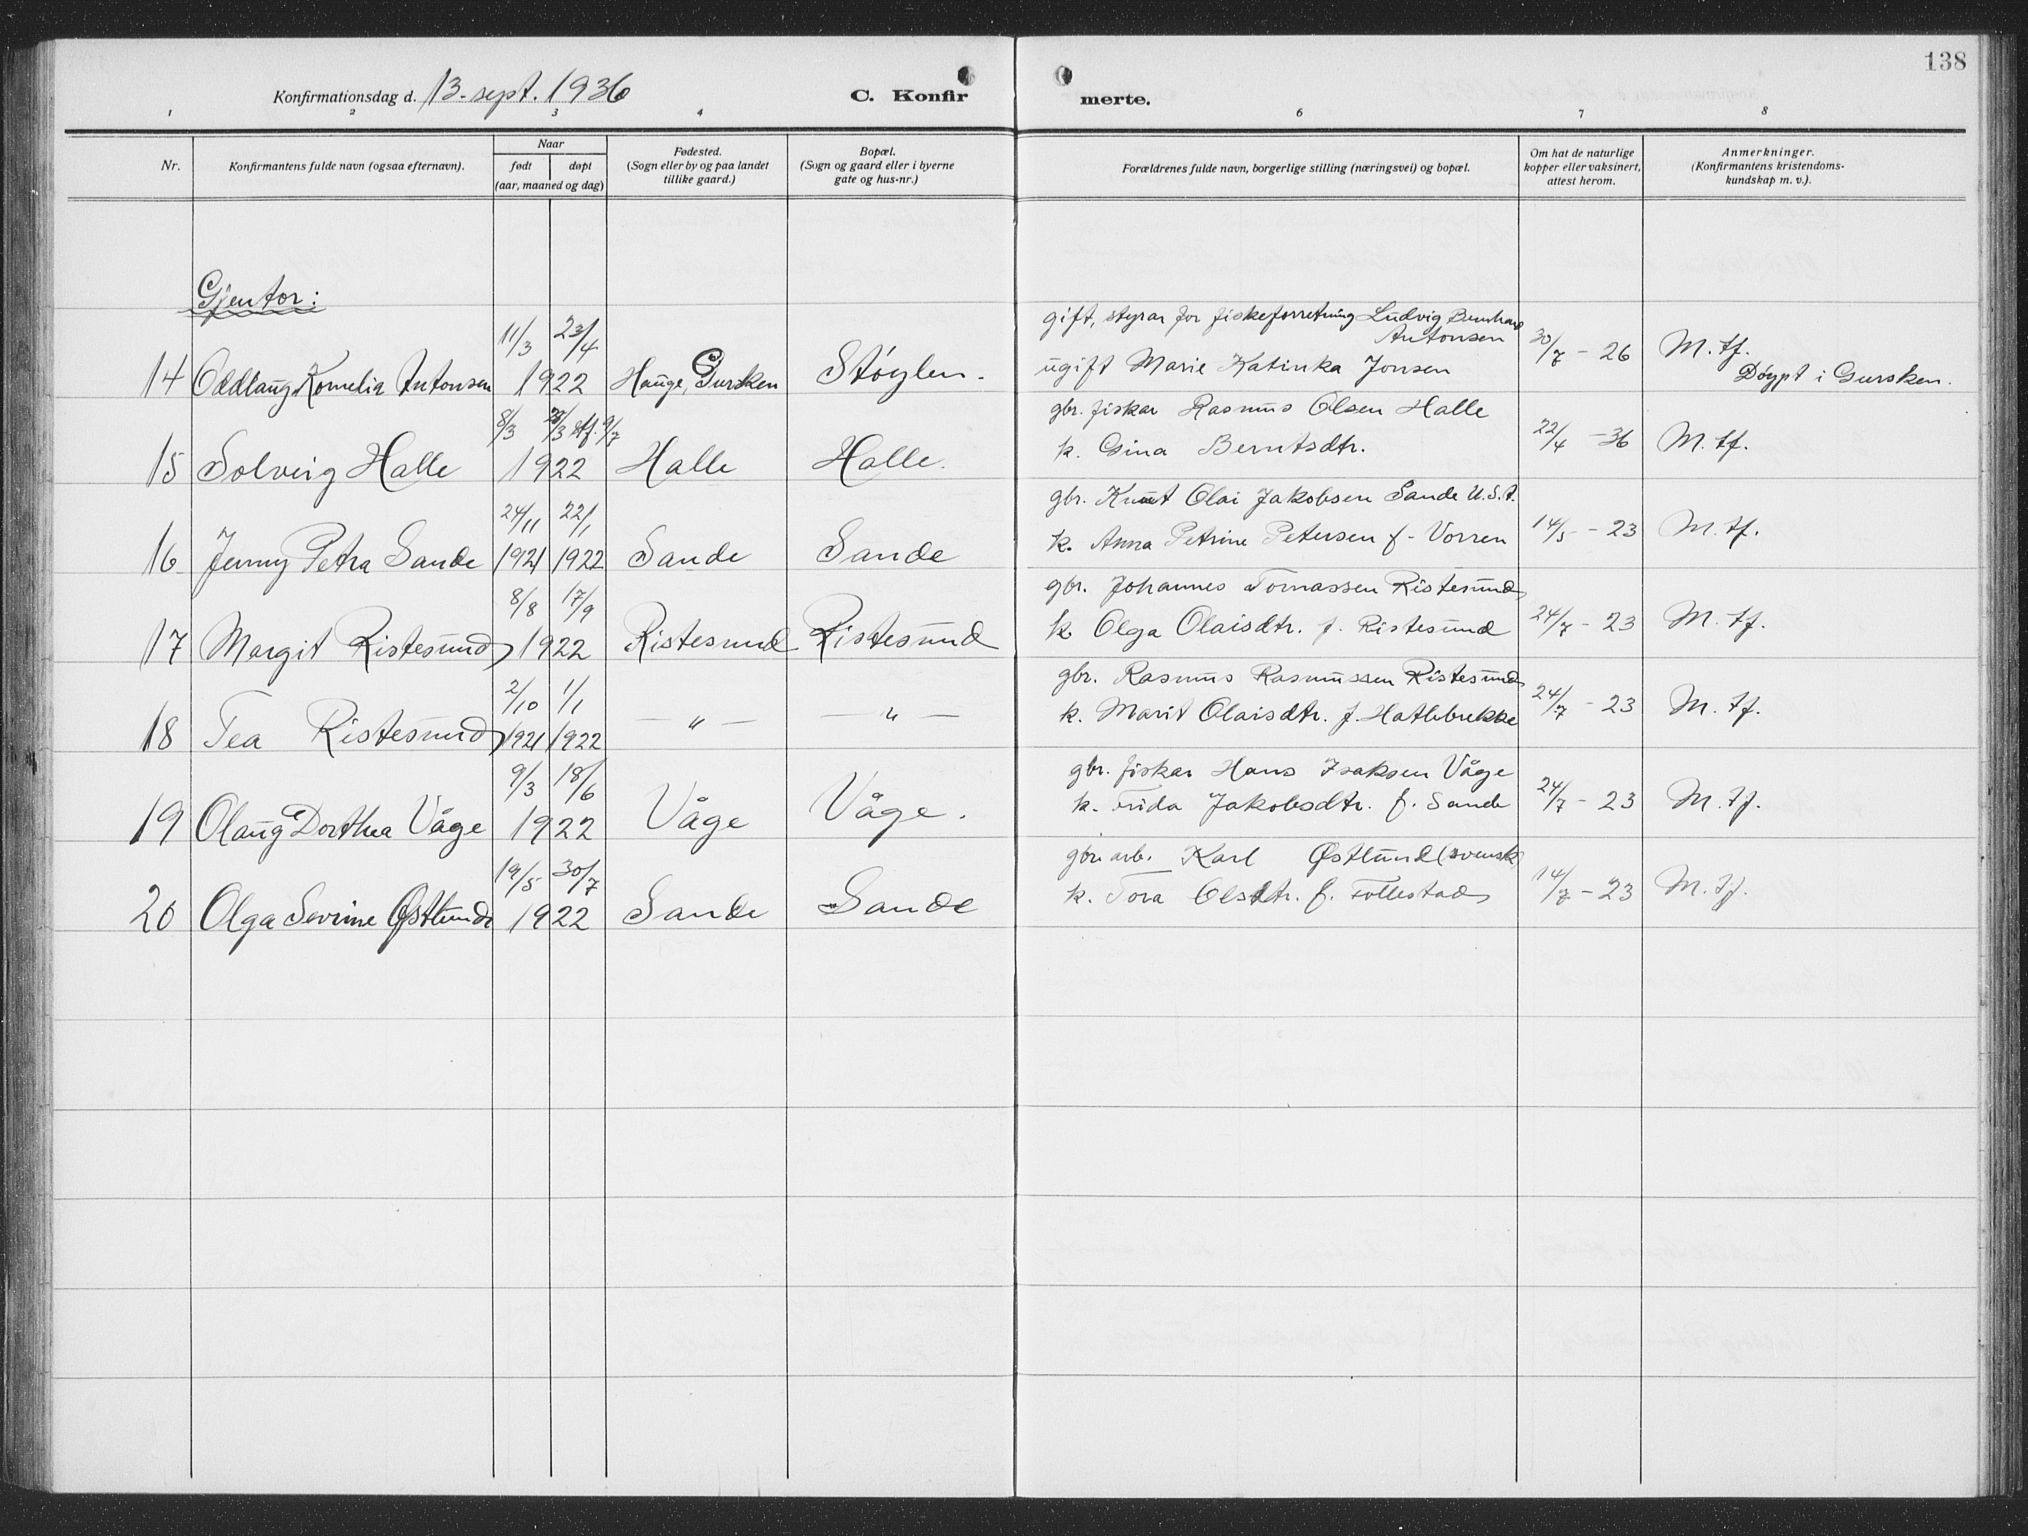 138
Konfirmationsdag d. 13. sept. 1936 C. Konfir merte.
1 2 3 4 6 7 8
Nr. Konfirmantens fulde navn (ogsaa efternavn). Naar født døpt (aar, maaned og dag) Fødested. (Sogn eller by og paa landet tillike gaard.) Bopæl. (Sogn og gaard eller i byerne gate og hus-nr.) Forældrenes fulde navn, borgerlige stilling (næringsvei) og bopæl. Om hat de naturlige kopper eller vaksinert, attest herom. Anmerkninger. (Konfirmantens kristendoms-kundskap m. v.).
Gjentor:
11/3 23/4 gift, styrar for fiskeforretning Ludvig Antonsen
14 Oddlaug Kornelia Antonsen 1922 Hauge, Gursken Støylen. ugift Marie Katinka Jonsen 30/7 - 26 M. tf. Døypt i Gursken.
8/3 /3 stf. 9/7 gbr. fiskar Rasmus Olsen Halle
15 Solveig Halle 1922 Halle Halle. k. Gina Berntsdtr. 22/4 - 36 M. tf.
24/11 22/1 gbr. Knut Olai Jakobsen Sande U.S.A.
16 Jenny Petra Sande 1921 1922 Sande Sande k. Anna Petrine Petersen f. Vorren 14/5 - 23 M. tf.
8/8 17/9 gbr. Johannes Tomassen Ristesund
17 Margit Ristesund 1922 Ristesund Ristesund k. Olga Olaisdtr. f. Ristesund 24/7 - 23 M. tf.
2/10 1/1 gbr. Rasmus Rasmussen Ristesund
18 Tea Ristesund 1921 1922 — " — — " — k. Marit Olaisdtr. f. Hatlebrekke 24/7 - 23 M. tf.
9/3 18/6 gbr. fiskar Hans Isaksen Våge
19 Olaug Dorthea Våge 1922 Våge Våge. k. Frida Jakobsdtr. f. Sande 24/7 - 23 M. tf.
19/5 30/7 gbr. arb. Karl Østlund (svensk)
20 Olga Sevrine Østlund 1922 Sande Sande k. Tora Olsdtr. f. Follestad 14/7 - 23 M. tf.